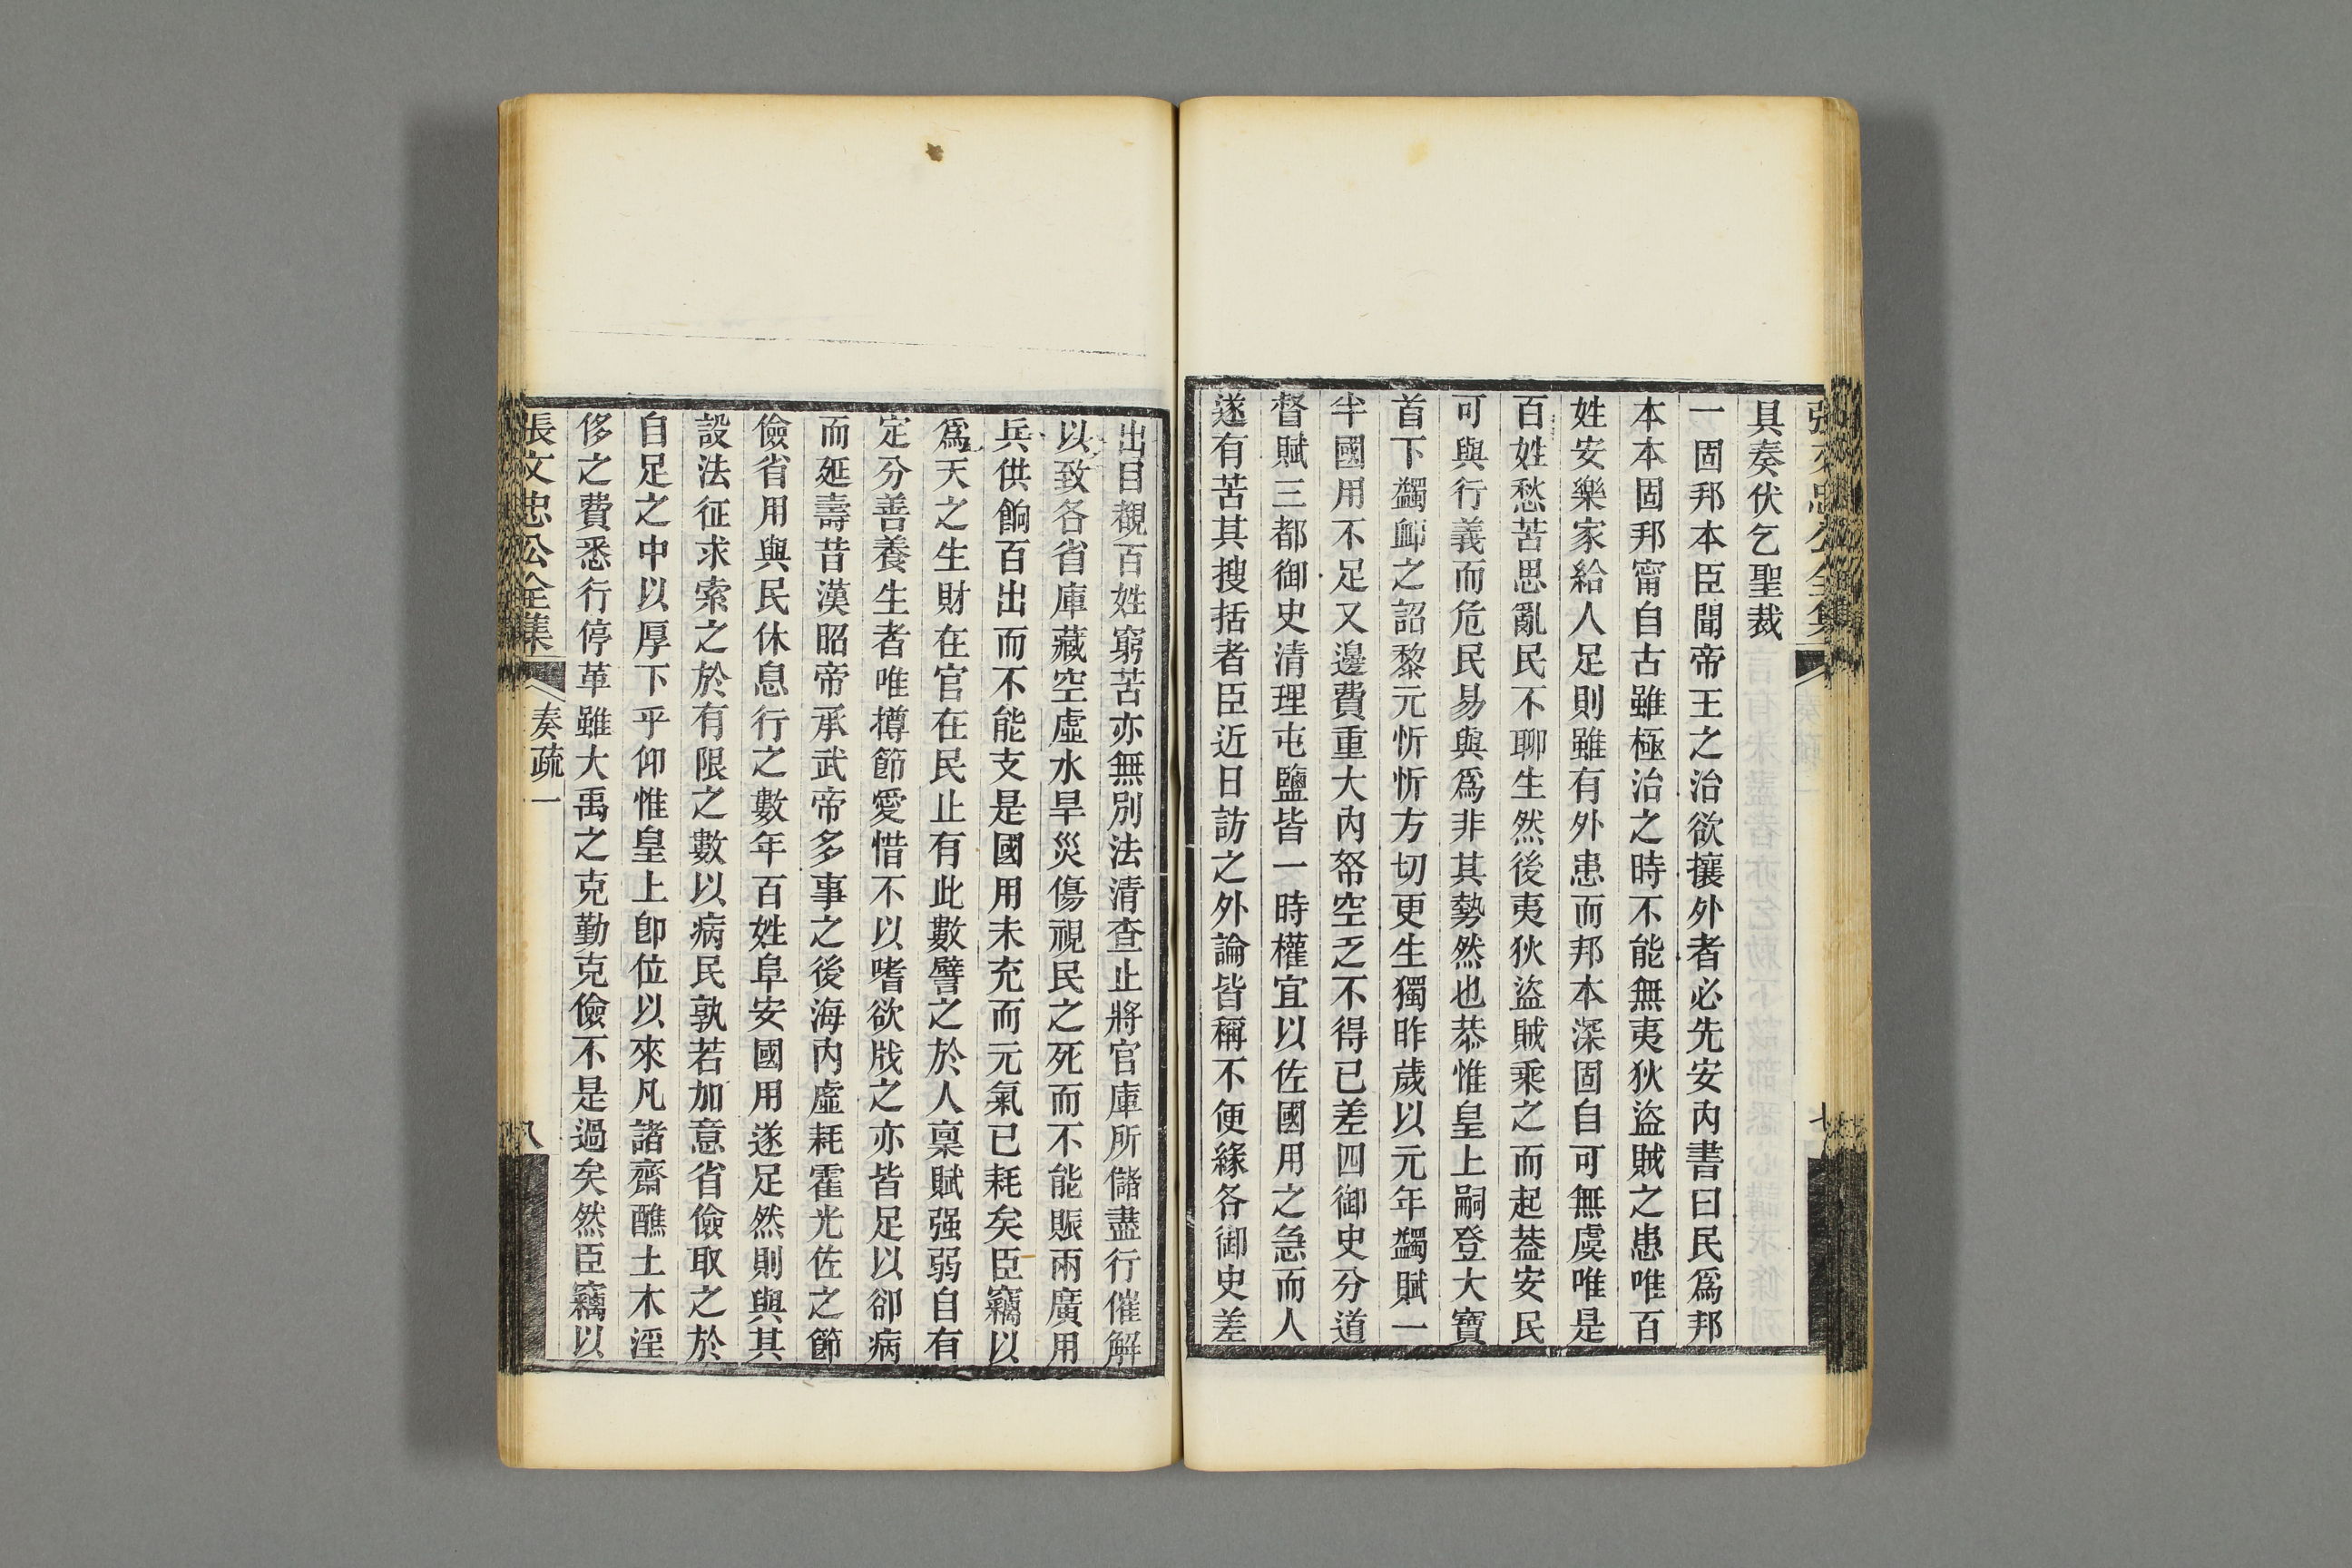 張文忠公全集
具奏伏乞聖裁
一固邦本臣聞帝王之治欲攘外者必先安內書曰民爲邦
本本固邦甯自古雖極治之時不能無夷狄盜賊之患唯百
姓安樂家給人足則雖有外患而邦本深固自可無虞唯是
百姓愁苦思亂民不聊生然後夷狄盜賊乘之而起葢安民
可與行義而危民易與爲非其勢然也恭惟皇上嗣登大寶
首下蠲䘏之詔黎元忻忻方切更生獨昨歲以元年蠲賦一
半國用不足又邊費重大內帑空乏不得已差四御史分道
督賦三都御史清理屯鹽皆一時權宜以佐國用之急而人
遂有苦其搜括者臣近日訪之外論皆稱不便緣各御史差
出目覩百姓窮苦亦無別法清查止將官庫所儲盡行催解
以致各省庫藏空虛水旱災傷視民之死而不能賑兩廣用
兵供餉百出而不能支是國用未充而元氣已耗矣臣竊以
爲天之生財在官在民止有此數譬之於人稟賦强弱自有
定分善養生者唯撙節愛惜不以嗜欲戕之亦皆足以卻病
而延壽昔漢昭帝承武帝多事之後海內虛耗霍光佐之節
儉省用與民休息行之數年百姓阜安國用遂足然則與其
設法征求索之於有限之數以病民孰若加意省儉取之於
自足之中以厚下乎仰惟皇上卽位以來凡諸齋醮土木淫
侈之費悉行停革雖大禹之克勤克儉不是過矣然臣竊以
張文忠公全集 奏疏一 八